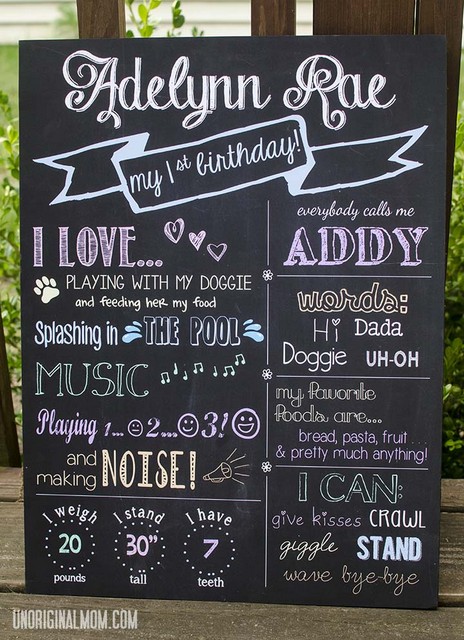 Adelynn Rae
my 1st birthday!
I LOVE...
PLAYING WITH MY DOGGIE
and feeding her my food
Splashing in THE POOL
MUSIC
Playing 1...2...3!
and
making NOISE!
I weigh
20
pounds
I stand
30"
tall
I have
7
teeth
everybody calls me
ADDY
words:
Hi Dada
Doggie UH-OH
my favorite
foods are...
bread, pasta, fruit...
& pretty much anything!
I CAN:
give kisses CRAWL
giggle STAND
wave bye-bye
UNORIGINALMOM.COM